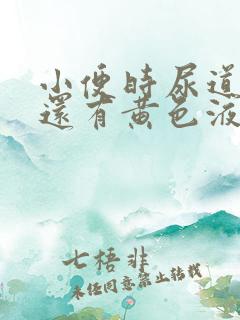 小便時尿道
還有黄色液
七梧非
未经同意禁止转载